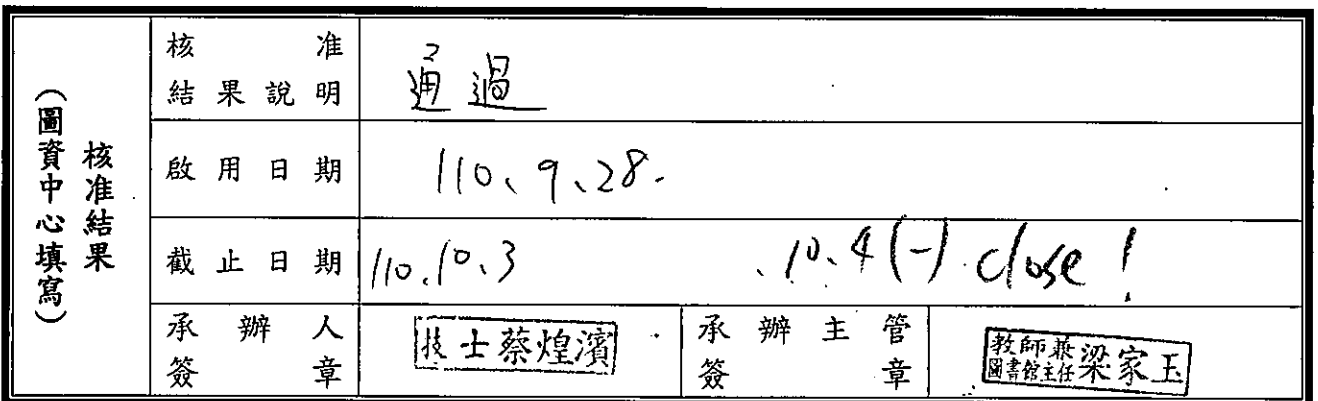 核准結果
（圖資中心填寫）
核准
結果說明
通過
啟用日期
110、9、28.
截止日期
110.10、3
.10、4(一) close!
承辦人
簽章
技士蔡煌濱
承辦主管
簽章
教師兼
圖書館主任
梁家玉